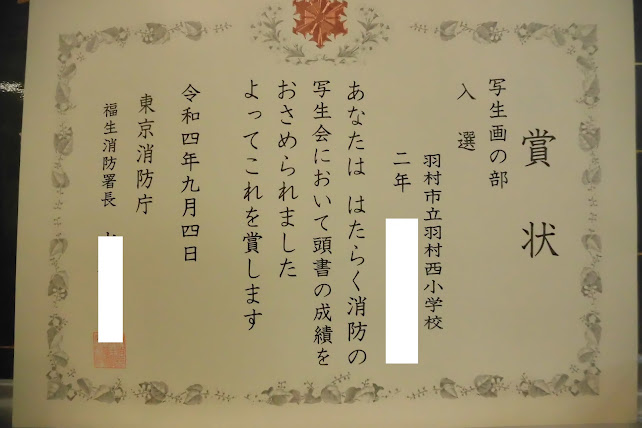 賞状
写生画の部
入選
羽村市立羽村西小学校
二年
あなたは はたらく消防の
写生会において頭書の成績を
おさめられました
よってこれを賞します
令和四年九月四日
東京消防庁
福生消防署長